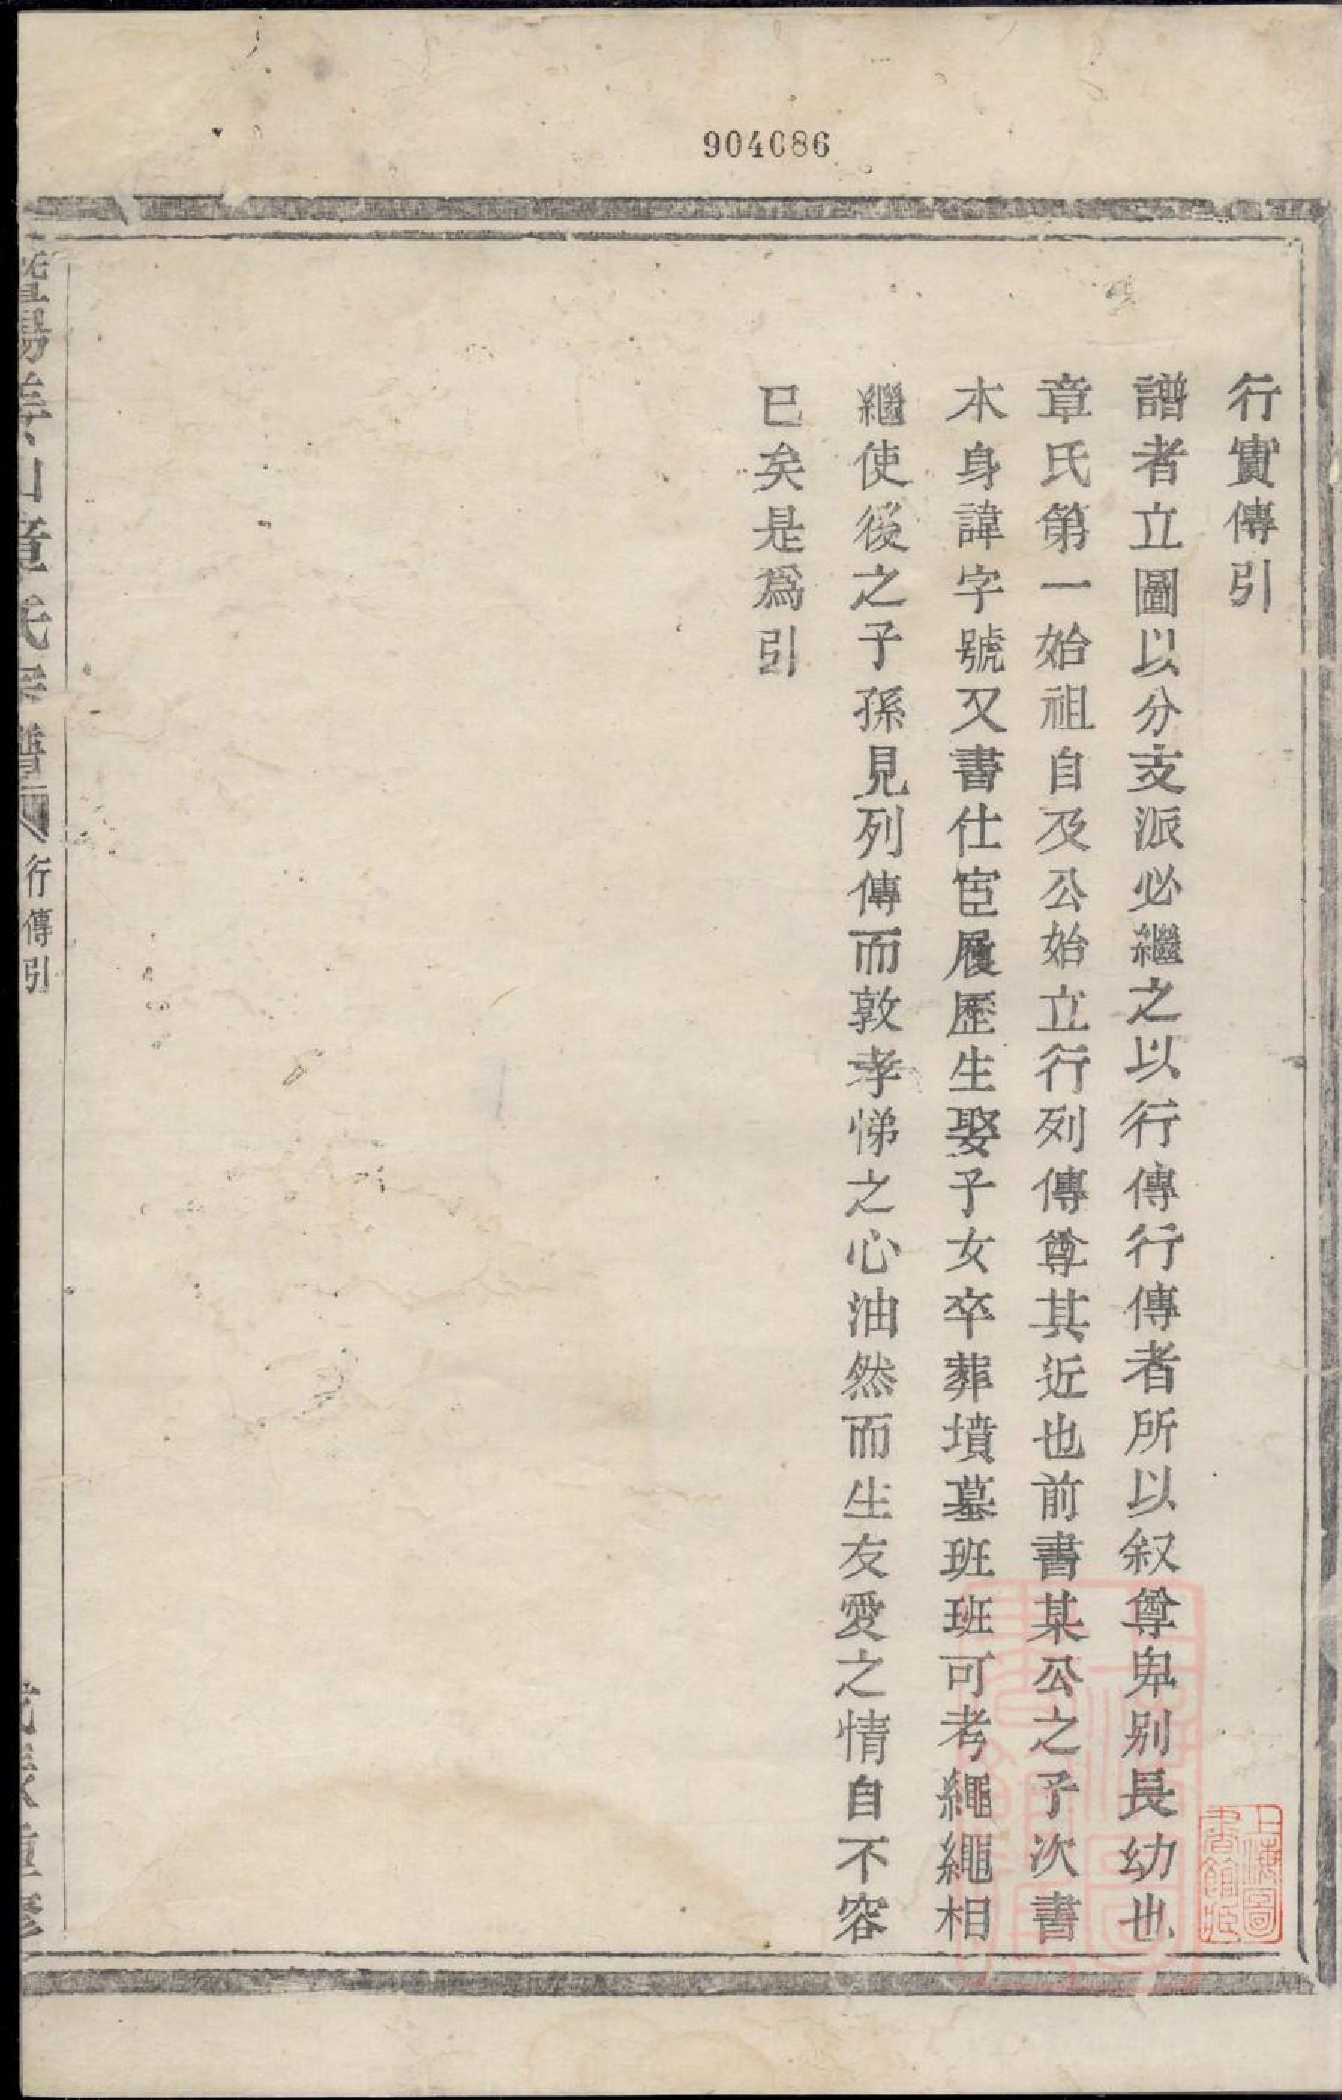 904086
行實傳引
譜者立圖以分支派必繼之以行傳行傳者所以叙尊卑别長幼也
章氏第一始祖自及公始立行列傳尊其近也前書某公之子次書
本身諱字號又書仕宦履歷生娶子女卒葬墳墓班班可考繩繩相
繼使後之子孫見列傳而敦孝悌之心油然而生友愛之情自不容
已矣是爲引
山章氏宗譜
行傳引
上海圖書館藏